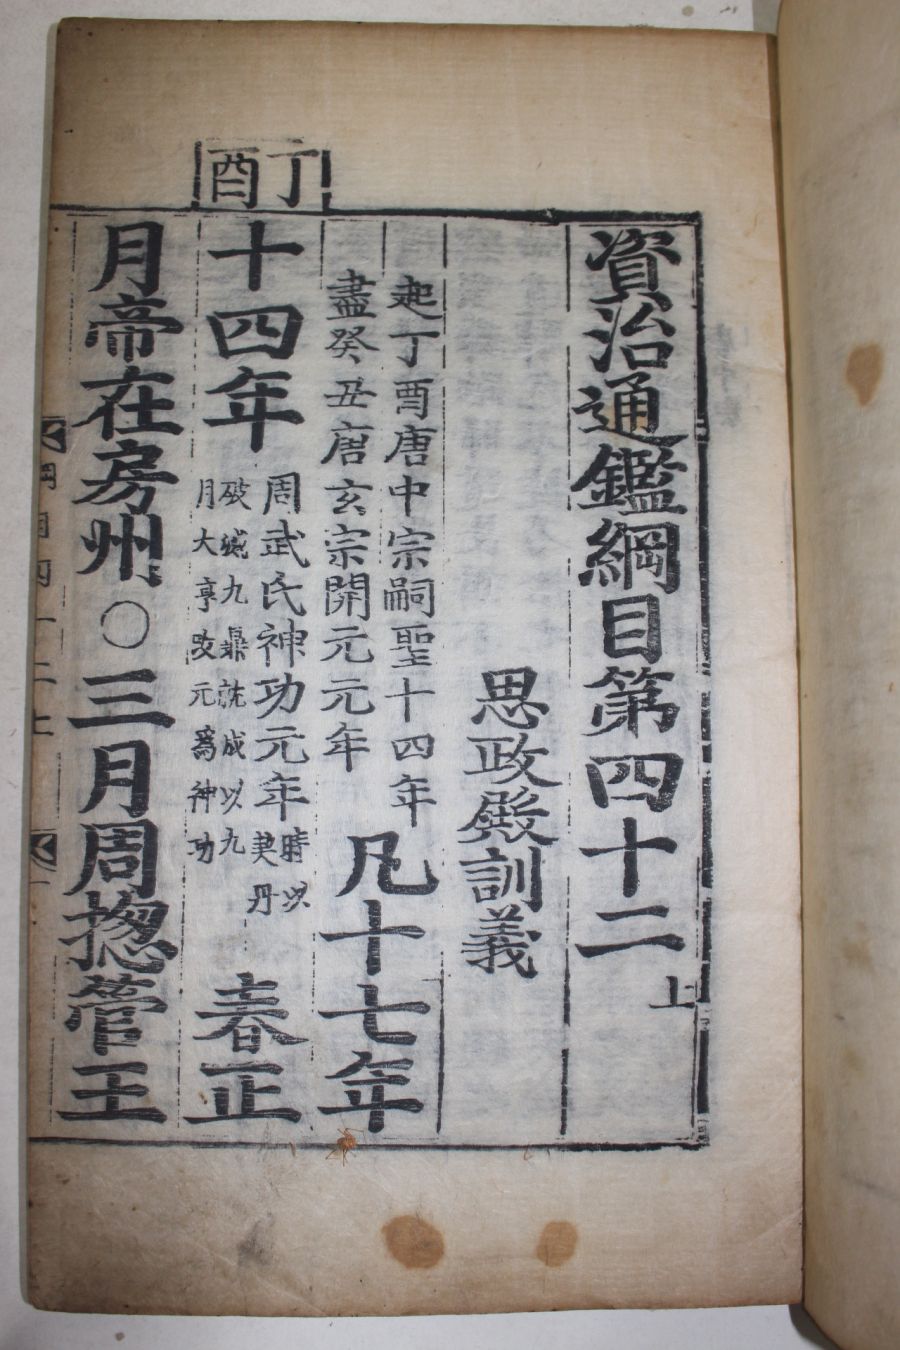 資治通鑑綱目第四十二上
思政殿訓義
起丁酉唐中宗嗣聖十四年
盡癸丑唐玄宗開元元年
凡十七年
丁酉
十四年
周武氏神功元年
時以
契丹
破滅九鼎就成以九
月大亨改元爲神功
春正
月帝在房州○三月周揔管王
綱目四十二上